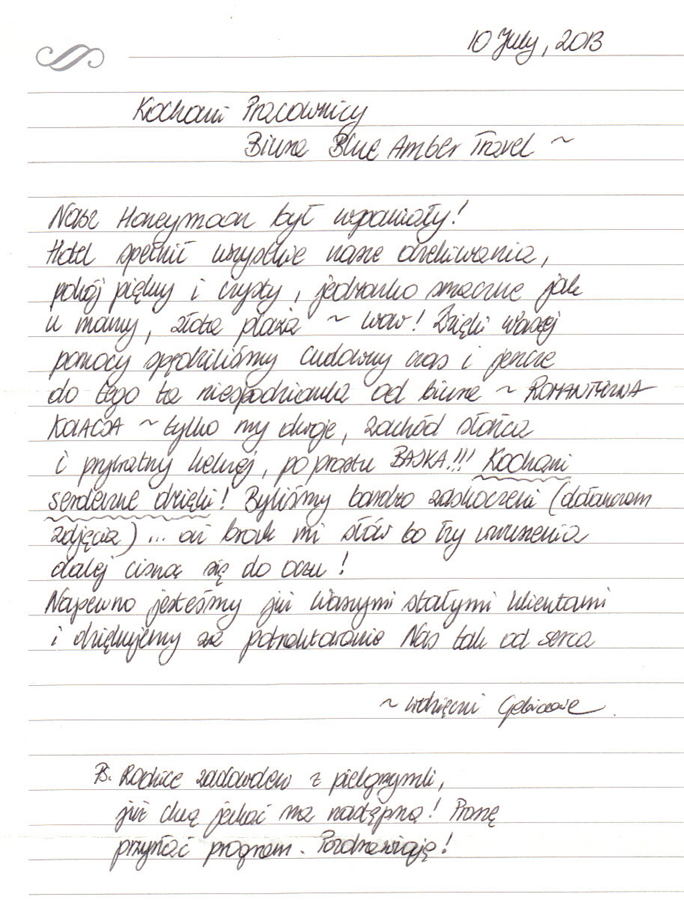 10 July, 2013
Kochani Pracownicy
Biura Blue Amber Travel ~
Nasz Honeymoon był wspaniały!
Hotel spełnił wszystkie nasze oczekiwania,
pokój piękny i czysty, jedzonko smaczne jak
u mamy, złota plaża ~ wow! Dzięki waszej
pomocy spędziliśmy cudowny czas i jeszcze
do tego ta niespodzianka od biura ~ ROMANTYCZNA
KOLACJA ~ tylko my dwoje, zachód słońca
i prywatny kelner, po prostu BAJKA!!! Kochani
serdeczne dzięki! Byliśmy bardzo zaskoczeni (dołanczam
zdjęcia)... aż brak mi słów bo łzy wzruszenia
dalej cisną się do oczu!
Napewno jesteśmy już waszymi stałymi klientami
i dziękujemy za potraktowanie Nas tak od serca
~ wdzięczni
Ps. Rodzice zadowoleni z pielgrzymki,
już chcą jechać na następną! Proszę
przysłać program. Pozdrawiają!